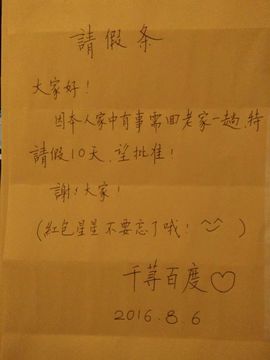 請假条
大家好！
因本人家中有事需回老家一趟,特
請假10天,望批准！
謝谢大家！
(紅包星星不要忘了哦！^^)
千荨百度♡
2016.8.6